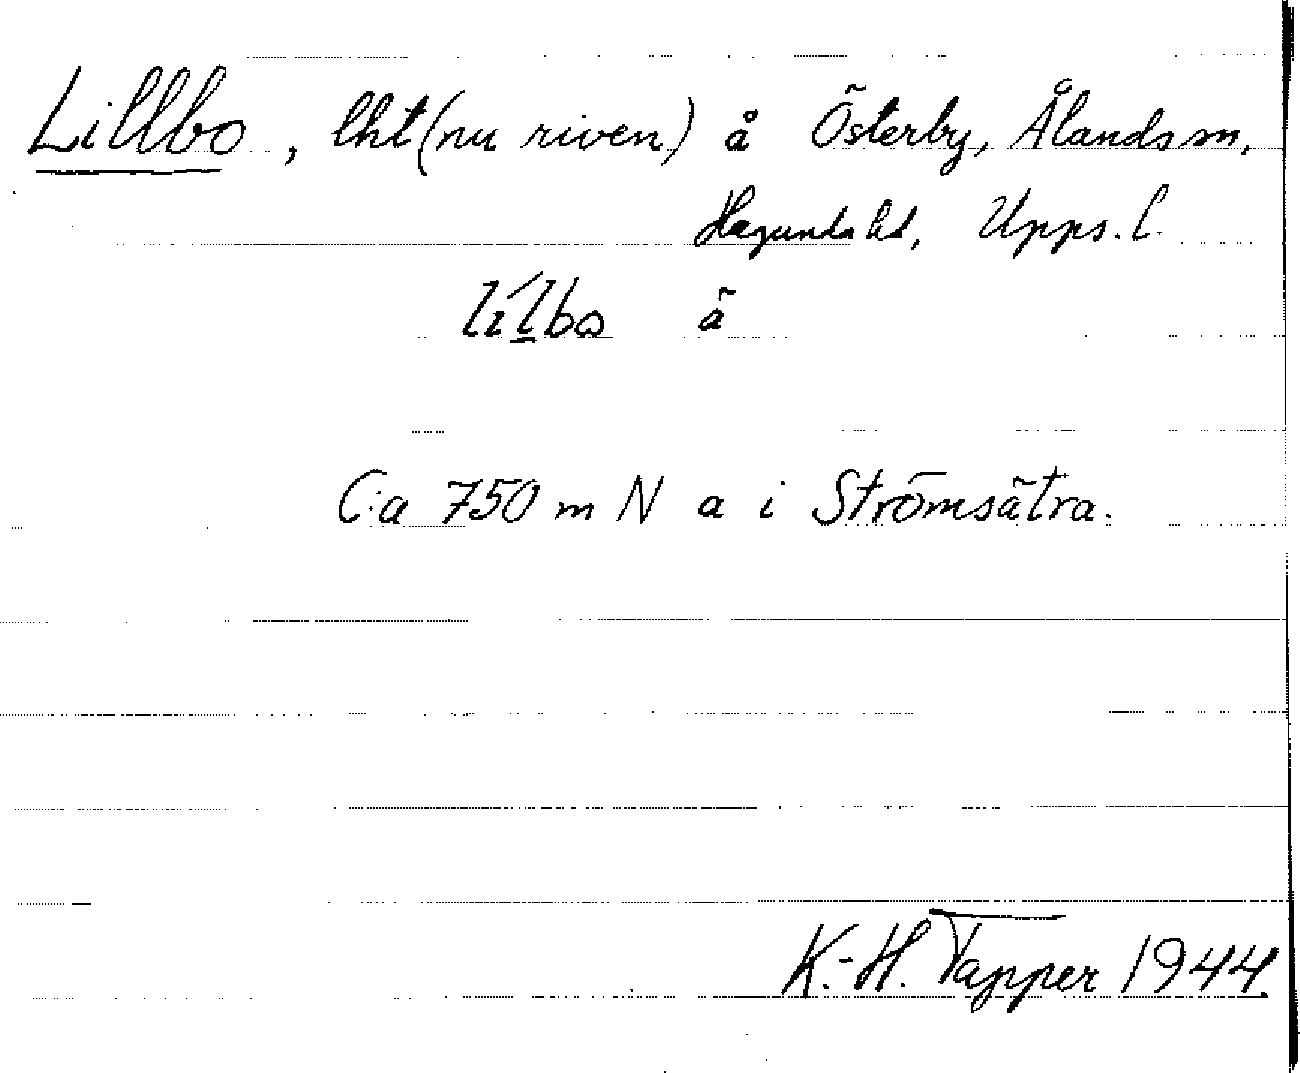 Lillbo, lht (nu riven) å Österby, Ålands sn,
Hagunda hd, Upps. l.
lílbo ä
C:a 750 m N a i Strömsätra.
K.-H. Tapper 1944.